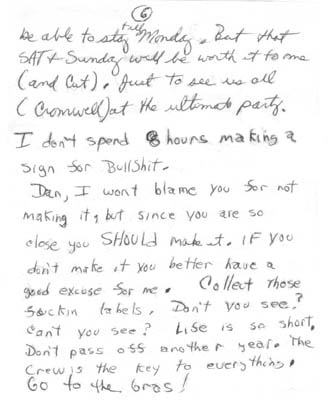 6
till
be able to stay Monday. But that
SAT & Sunday will be worth it to me
(and Cut). Just to see us all
(Cromwell) at the ultimate party.
I don't spend 8 hours making a
sign for Bullshit.
Dan, I wont blame you for not
making it, but since you are so
close you SHOULD make it. IF you
don't make it you better have a
good excuse for me. Collect those
suckin labels. Don't you see?
Can't you see? Life is so short.
Don't pass off another year. The
Crew is the key to everything.
Go to the Gras!